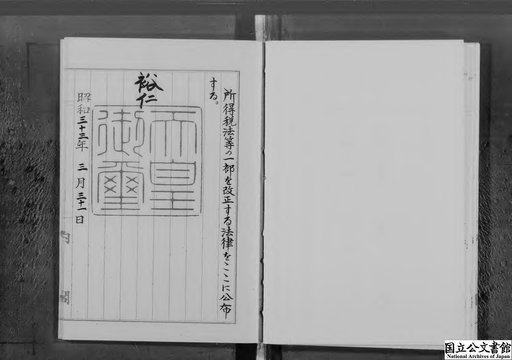 所得税法等の一部を改正する法律をここに公布
する。
裕仁
天皇
御璽
昭和三十三年 三月三十一日
内閣
国立公文書館
National Archives of Japan